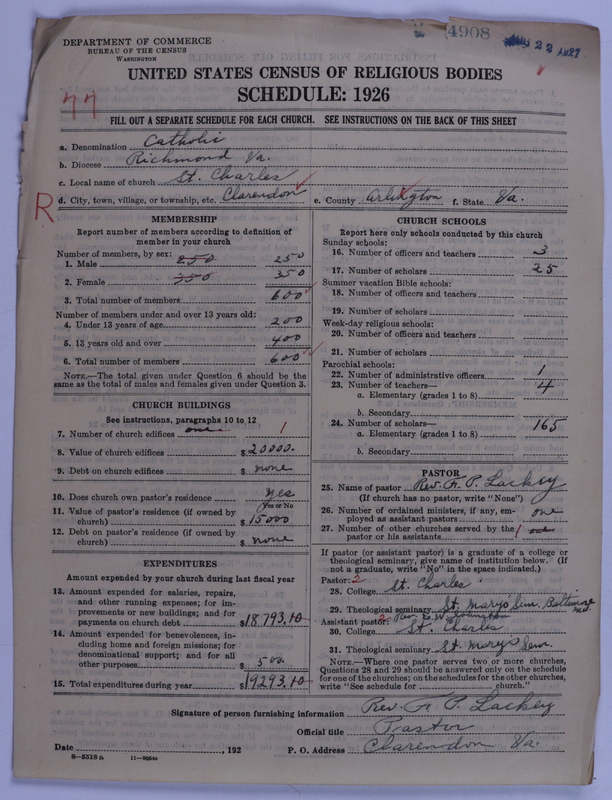 4908
22 1927
DEPARTMENT OF COMMERCE
BUREAU OF THE CENSUS
WASHINGTON
UNITED STATES CENSUS OF RELIGIOUS BODIES
SCHEDULE: 1926
77
FILL OUT A SEPARATE SCHEDULE FOR EACH CHURCH. SEE INSTRUCTIONS ON THE BACK OF THIS SHEET
a. Denomination Catholic
b. Diocese Richmond Va.
c. Local name of church St. Charles
R d. City, town, village, or township, etc. Clarendon e. County Arlington f. State Va.
MEMBERSHIP
Report number of members according to definition of
member in your church
Number of members, by sex:
1. Male 250 250
2. Female 350 350
3. Total number of members 600
Number of members under and over 13 years old:
4. Under 13 years of age 200
5. 13 years old and over 400
6. Total number of members 600
NOTE.—The total given under Question 6 should be the
same as the total of males and females given under Question 3.
CHURCH BUILDINGS
See instructions, paragraphs 10 to 12
7. Number of church edifices one 1
8. Value of church edifices $20000.
9. Debt on church edifices $ none
10. Does church own pastor's residence yes
(Yes or No)
11. Value of pastor's residence (if owned by
church) $15000
12. Debt on pastor's residence (if owned by
church) $ none
EXPENDITURES
Amount expended by your church during last fiscal year
13. Amount expended for salaries, repairs,
and other running expenses; for im-
provements or new buildings; and for
payments on church debt $18,793.10
14. Amount expended for benevolences, in-
cluding home and foreign missions; for
denominational support; and for all
other purposes $ 500.
15. Total expenditures during year $19293.10
CHURCH SCHOOLS
Report here only schools conducted by this church
Sunday schools:
16. Number of officers and teachers 3
17. Number of scholars 25
Summer vacation Bible schools:
18. Number of officers and teachers
19. Number of scholars
Week-day religious schools:
20. Number of officers and teachers
21. Number of scholars
Parochial schools:
22. Number of administrative officers 1
23. Number of teachers—
a. Elementary (grades 1 to 8) 4
b. Secondary
24. Number of scholars—
a. Elementary (grades 1 to 8) 165
b. Secondary
PASTOR
25. Name of pastor Rev. Fr. P. Lackey
(If church has no pastor, write "None")
26. Number of ordained ministers, if any, em-
ployed as assistant pastors one
27. Number of other churches served by the
pastor or his assistants 1 one
If pastor (or assistant pastor) is a graduate of a college or
theological seminary, give name of institution below. (If
not a graduate, write "No" in the space indicated.)
Pastor: 2
28. College St. Charles
29. Theological seminary St. Mary's Sem. Baltimore Md.
Assistant pastor: 2 Rev.
30. College St. Charles
31. Theological seminary St. Mary's Sem.
NOTE.—Where one pastor serves two or more churches,
Questions 28 and 29 should be answered only on the schedule
for one of the churches; on the schedules for the other churches,
write "See schedule for church."
Signature of person furnishing information Rev. Fr. P. Lackey
Official title Pastor
Date , 192 P. O. Address Clarendon Va.
8—5518 a 11—9054